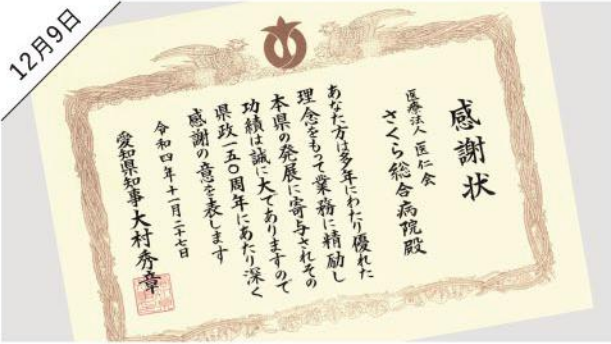 12月9日
感謝状
医療法人 医仁会
さくら総合病院殿
あなた方は多年にわたり優れた
理念をもって業務に精励し
本県の発展に寄与されその
功績は誠に大でありますので
県政一五〇周年にあたり深く
感謝の意を表します
令和四年十一月二十七日
愛知県知事大村秀章